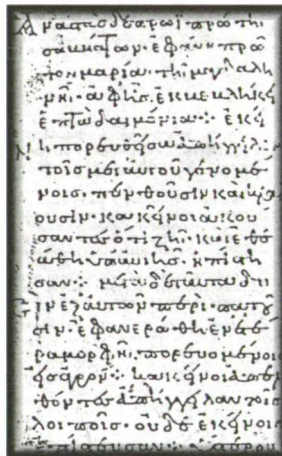 Ἀναστὰς δὲ πρωῒ πρώτη
σαββάτων· ἐφάνη πρῶ
τον μαρία τῇ μαγδαλη
νῇ· ἀφ' ἧς ἐκβεβλήκει
ἑπτὰ δαιμόνια· ἐκεί
νη πορευθεῖσα ἀπήγγειλε
τοῖς μετ' αὐτοῦ γενομέ
νοις· πενθοῦσιν καὶ κλαί
ουσιν· κἀκεῖνοι ἀκού
σαντες ὅτι ζῇ· καὶ ἐθε
άθη ὑπ' αὐτῆς· ἠπίστη
σαν· μετὰ δὲ ταῦτα δυ
σὶν ἐξ αὐτῶν περιπατοῦ
σιν· ἐφανερώθη ἐν ἑτέ
ρα μορφῇ· πορευομένοις
εἰς ἀγρόν· κἀκεῖνοι ἀπελ
θόντες ἀπήγγειλαν τοῖς
λοιποῖς· οὐδὲ ἐκείνοις
ἐπίστευσαν· ὕστερον